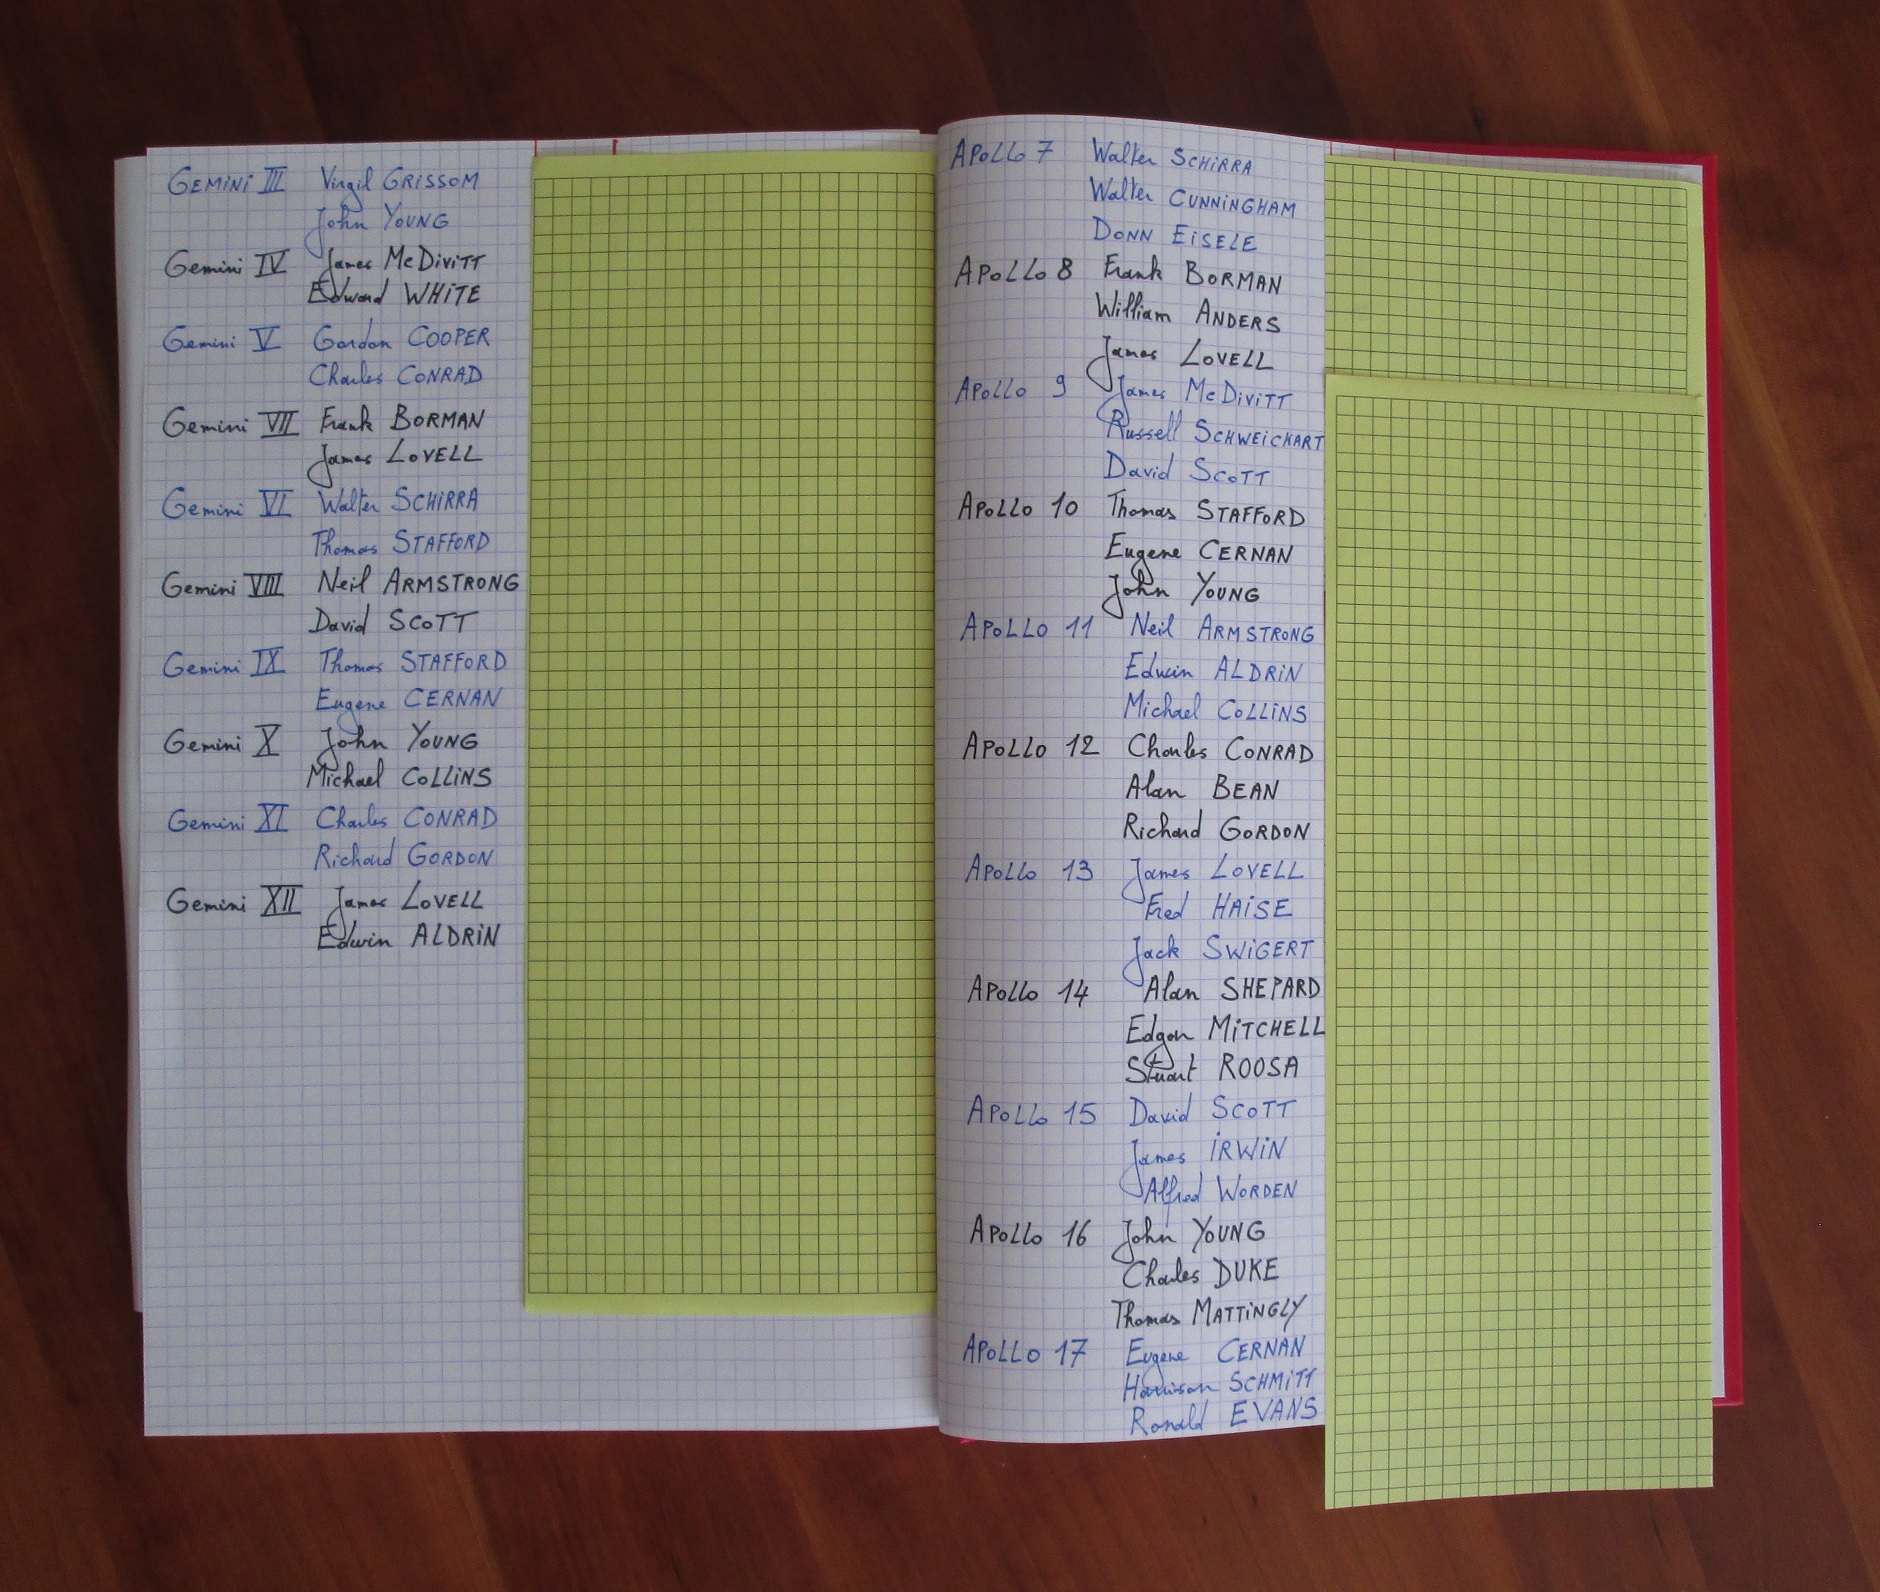 GEMINI III Virgil GRISSOM
John YOUNG
Gemini IV James McDIVITT
Edward WHITE
Gemini V Gordon COOPER
Charles CONRAD
Gemini VII Frank BORMAN
James LOVELL
Gemini VI Walter SCHIRRA
Thomas STAFFORD
Gemini VIII Neil ARMSTRONG
David SCOTT
Gemini IX Thomas STAFFORD
Eugene CERNAN
Gemini X John YOUNG
Michael COLLINS
Gemini XI Charles CONRAD
Richard GORDON
Gemini XII James LOVELL
Edwin ALDRIN
APOLLO 7 Walter SCHIRRA
Walter CUNNINGHAM
DONN EISELE
APOLLO 8 Frank BORMAN
William ANDERS
James LOVELL
APOLLO 9 James McDIVITT
Russell SCHWEICKART
David SCOTT
APOLLO 10 Thomas STAFFORD
Eugene CERNAN
John YOUNG
APOLLO 11 Neil ARMSTRONG
Edwin ALDRIN
Michael COLLINS
APOLLO 12 Charles CONRAD
Alan BEAN
Richard GORDON
APOLLO 13 James LOVELL
Fred HAISE
Jack SWIGERT
APOLLO 14 Alan SHEPARD
Edgar MITCHELL
Stuart ROOSA
APOLLO 15 David SCOTT
James IRWIN
Alfred WORDEN
APOLLO 16 John YOUNG
Charles DUKE
Thomas MATTINGLY
APOLLO 17 Eugene CERNAN
Harrison SCHMITT
Ronald EVANS